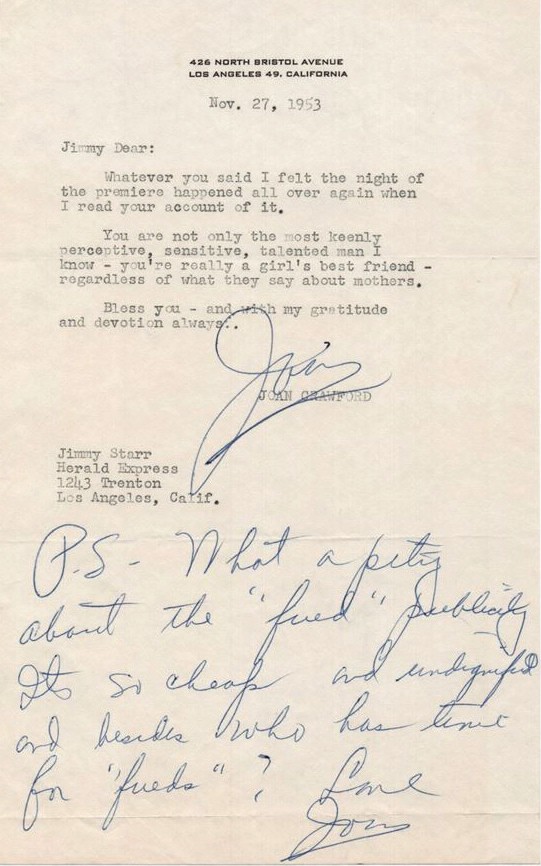 426 NORTH BRISTOL AVENUE
LOS ANGELES 49, CALIFORNIA
Nov. 27, 1953
Jimmy Dear:
Whatever you said I felt the night of
the premiere happened all over again when
I read your account of it.
You are not only the most keenly
perceptive, sensitive, talented man I
know - you're really a girl's best friend -
regardless of what they say about mothers.
Bless you - and with my gratitude
and devotion always..
Joan
JOAN CRAWFORD
Jimmy Starr
Herald Express
1243 Trenton
Los Angeles, Calif.
P.S- What a pity
about the "fued" publicity
Its so cheap and undignified
and besides who has time
for "fueds"? Love
Joan